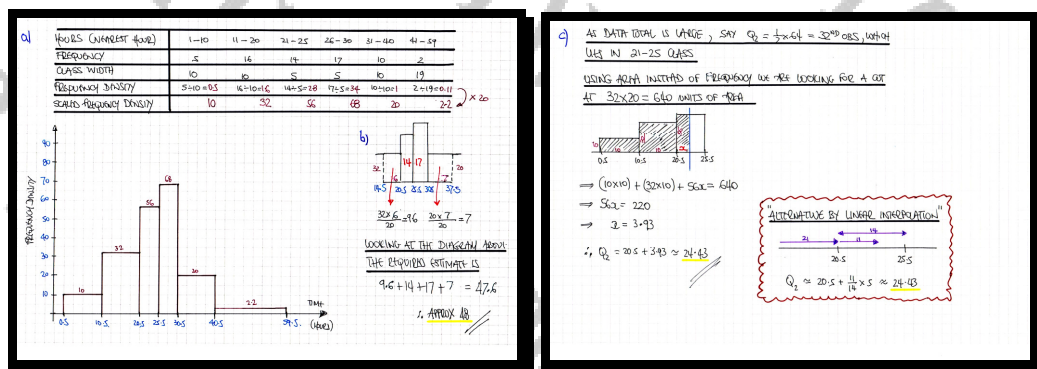 a)
HOURS (NEAREST HOUR) 1-10 11-20 21-25 26-30 31-40 41-59
FREQUENCY 5 16 14 17 10 2
CLASS WIDTH 10 10 5 5 10 19
FREQUENCY DENSITY 5÷10=0.5 16÷10=1.6 14÷5=2.8 17÷5=3.4 10÷10=1 2÷19=0.11
SCALED FREQUENCY DENSITY 10 32 56 68 20 2.2
×20
FREQUENCY DENSITY
90
80
70
60
50
40
30
20
10
10
32
56
68
20
2.2
0.5 10.5 20.5 25.5 30.5 40.5 59.5
TIME
(HOURS)
b)
32 6 14 17 7 20
14.5 20.5 25.5 30.5 37.5
32×6/20=9.6 20×7/20=7
LOOKING AT THE DIAGRAM ABOVE
THE REQUIRED ESTIMATE IS
9.6+14+17+7 = 47.6
∴ APPROX 48
c)
AS DATA TOTAL IS LARGE, SAY Q₂ = ½×64 = 32ND OBS, WHICH
LIES IN 21-25 CLASS
USING AREA INSTEAD OF FREQUENCY WE ARE LOOKING FOR A CUT
AT 32×20 = 640 UNITS OF AREA
10 10 10 x
0.5 10.5 20.5 25.5
⇒ (10×10) + (32×10) + 56x = 640
⇒ 56x = 220
⇒ x = 3.93
∴ Q₂ = 20.5 + 3.93 ≈ 24.43
"ALTERNATIVE BY LINEAR INTERPOLATION"
14
21 11
20.5 25.5
Q₂ ≈ 20.5 + 11/14 × 5 ≈ 24.43